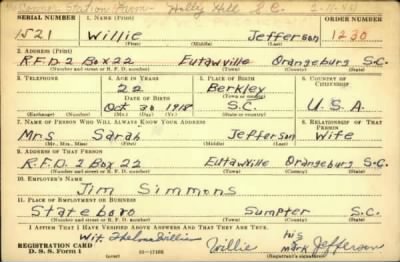 Conner Station Farm Holly Hill S.C.
SERIAL NUMBER 1. NAME (Print) ORDER NUMBER
1521 Willie Jefferson 1230
(First) (Middle) (Last)
2. ADDRESS (Print)
R.F.D. 2 Box 22 Eutawville Orangeburg S.C.
(Number and street or R. F. D. number) (Town) (County) (State)
3. TELEPHONE 4. AGE IN YEARS 5. PLACE OF BIRTH 6. COUNTRY OF CITIZENSHIP
22 Berkley
DATE OF BIRTH (Town or county)
Oct 30 1918 S.C. U.S.A.
(Exchange) (Number) (Mo.) (Day) (Yr.) (State or country)
7. NAME OF PERSON WHO WILL ALWAYS KNOW YOUR ADDRESS 8. RELATIONSHIP OF THAT PERSON
Mrs Sarah Jefferson Wife
(Mr., Mrs., Miss) (First) (Middle) (Last)
9. ADDRESS OF THAT PERSON
R.F.D. 2 Box 22 Eutawville Orangeburg S.C.
(Number and street or R. F. D. number) (Town) (County) (State)
10. EMPLOYER'S NAME
Jim Simmons
11. PLACE OF EMPLOYMENT OR BUSINESS
Stateboro Sumpter S.C.
(Number and street or R. F. D. number) (Town) (County) (State)
I AFFIRM THAT I HAVE VERIFIED ABOVE ANSWERS AND THAT THEY ARE TRUE.
Wit. Thelma Willis Willie his mark Jefferson
REGISTRATION CARD
D. S. S. Form 1 (Registrant's signature)